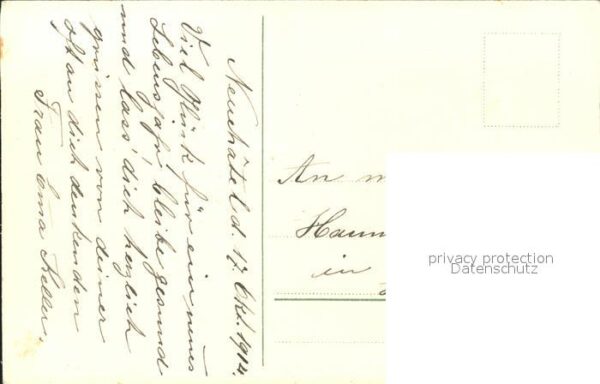 Neuchâtel d. 17. Okt. 1914.
Viel Glück für ein neues
Lebensjahr, bleibe gesund
und lass' dich herzlich
grüssen von deiner
oft an dich denkenden
Frau Emma Keller.
An
in
privacy protection
Datenschutz